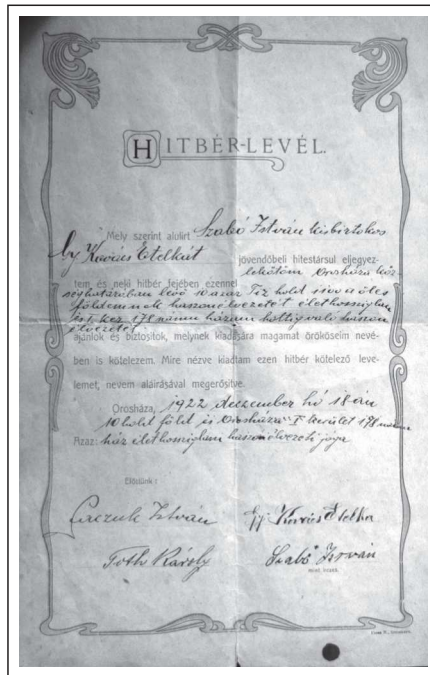 HITBÉR-LEVÉL.
Mely szerint alulírt Szabó István kisbirtokos
ifj Kovács Etelkát jövendőbeli hitestársul eljegyez-
tem, és neki hitbér fejében ezennel lekötöm Orosháza köz
ség határában lévő 10 azaz Tíz hold
földemnek haszonélvezetét élethossziglan
és I. ker. 178 számú házam holtig való haszon
élvezetét
ajánlok és biztosítok, melynek kiadására magamat örököseim nevé-
ben is kötelezem. Mire nézve kiadtam ezen hitbér kötelező leve-
lemet, nevem aláírásával megerősítve.
Orosháza, 1922 deczember hó 18 án
10 hold föld és Orosháza I kerület 178 számu
Azaz: ház élethossziglani haszonélvezeti joga
Előttünk:
István ifj Kovács Etelka
Toth Károly Szabó István